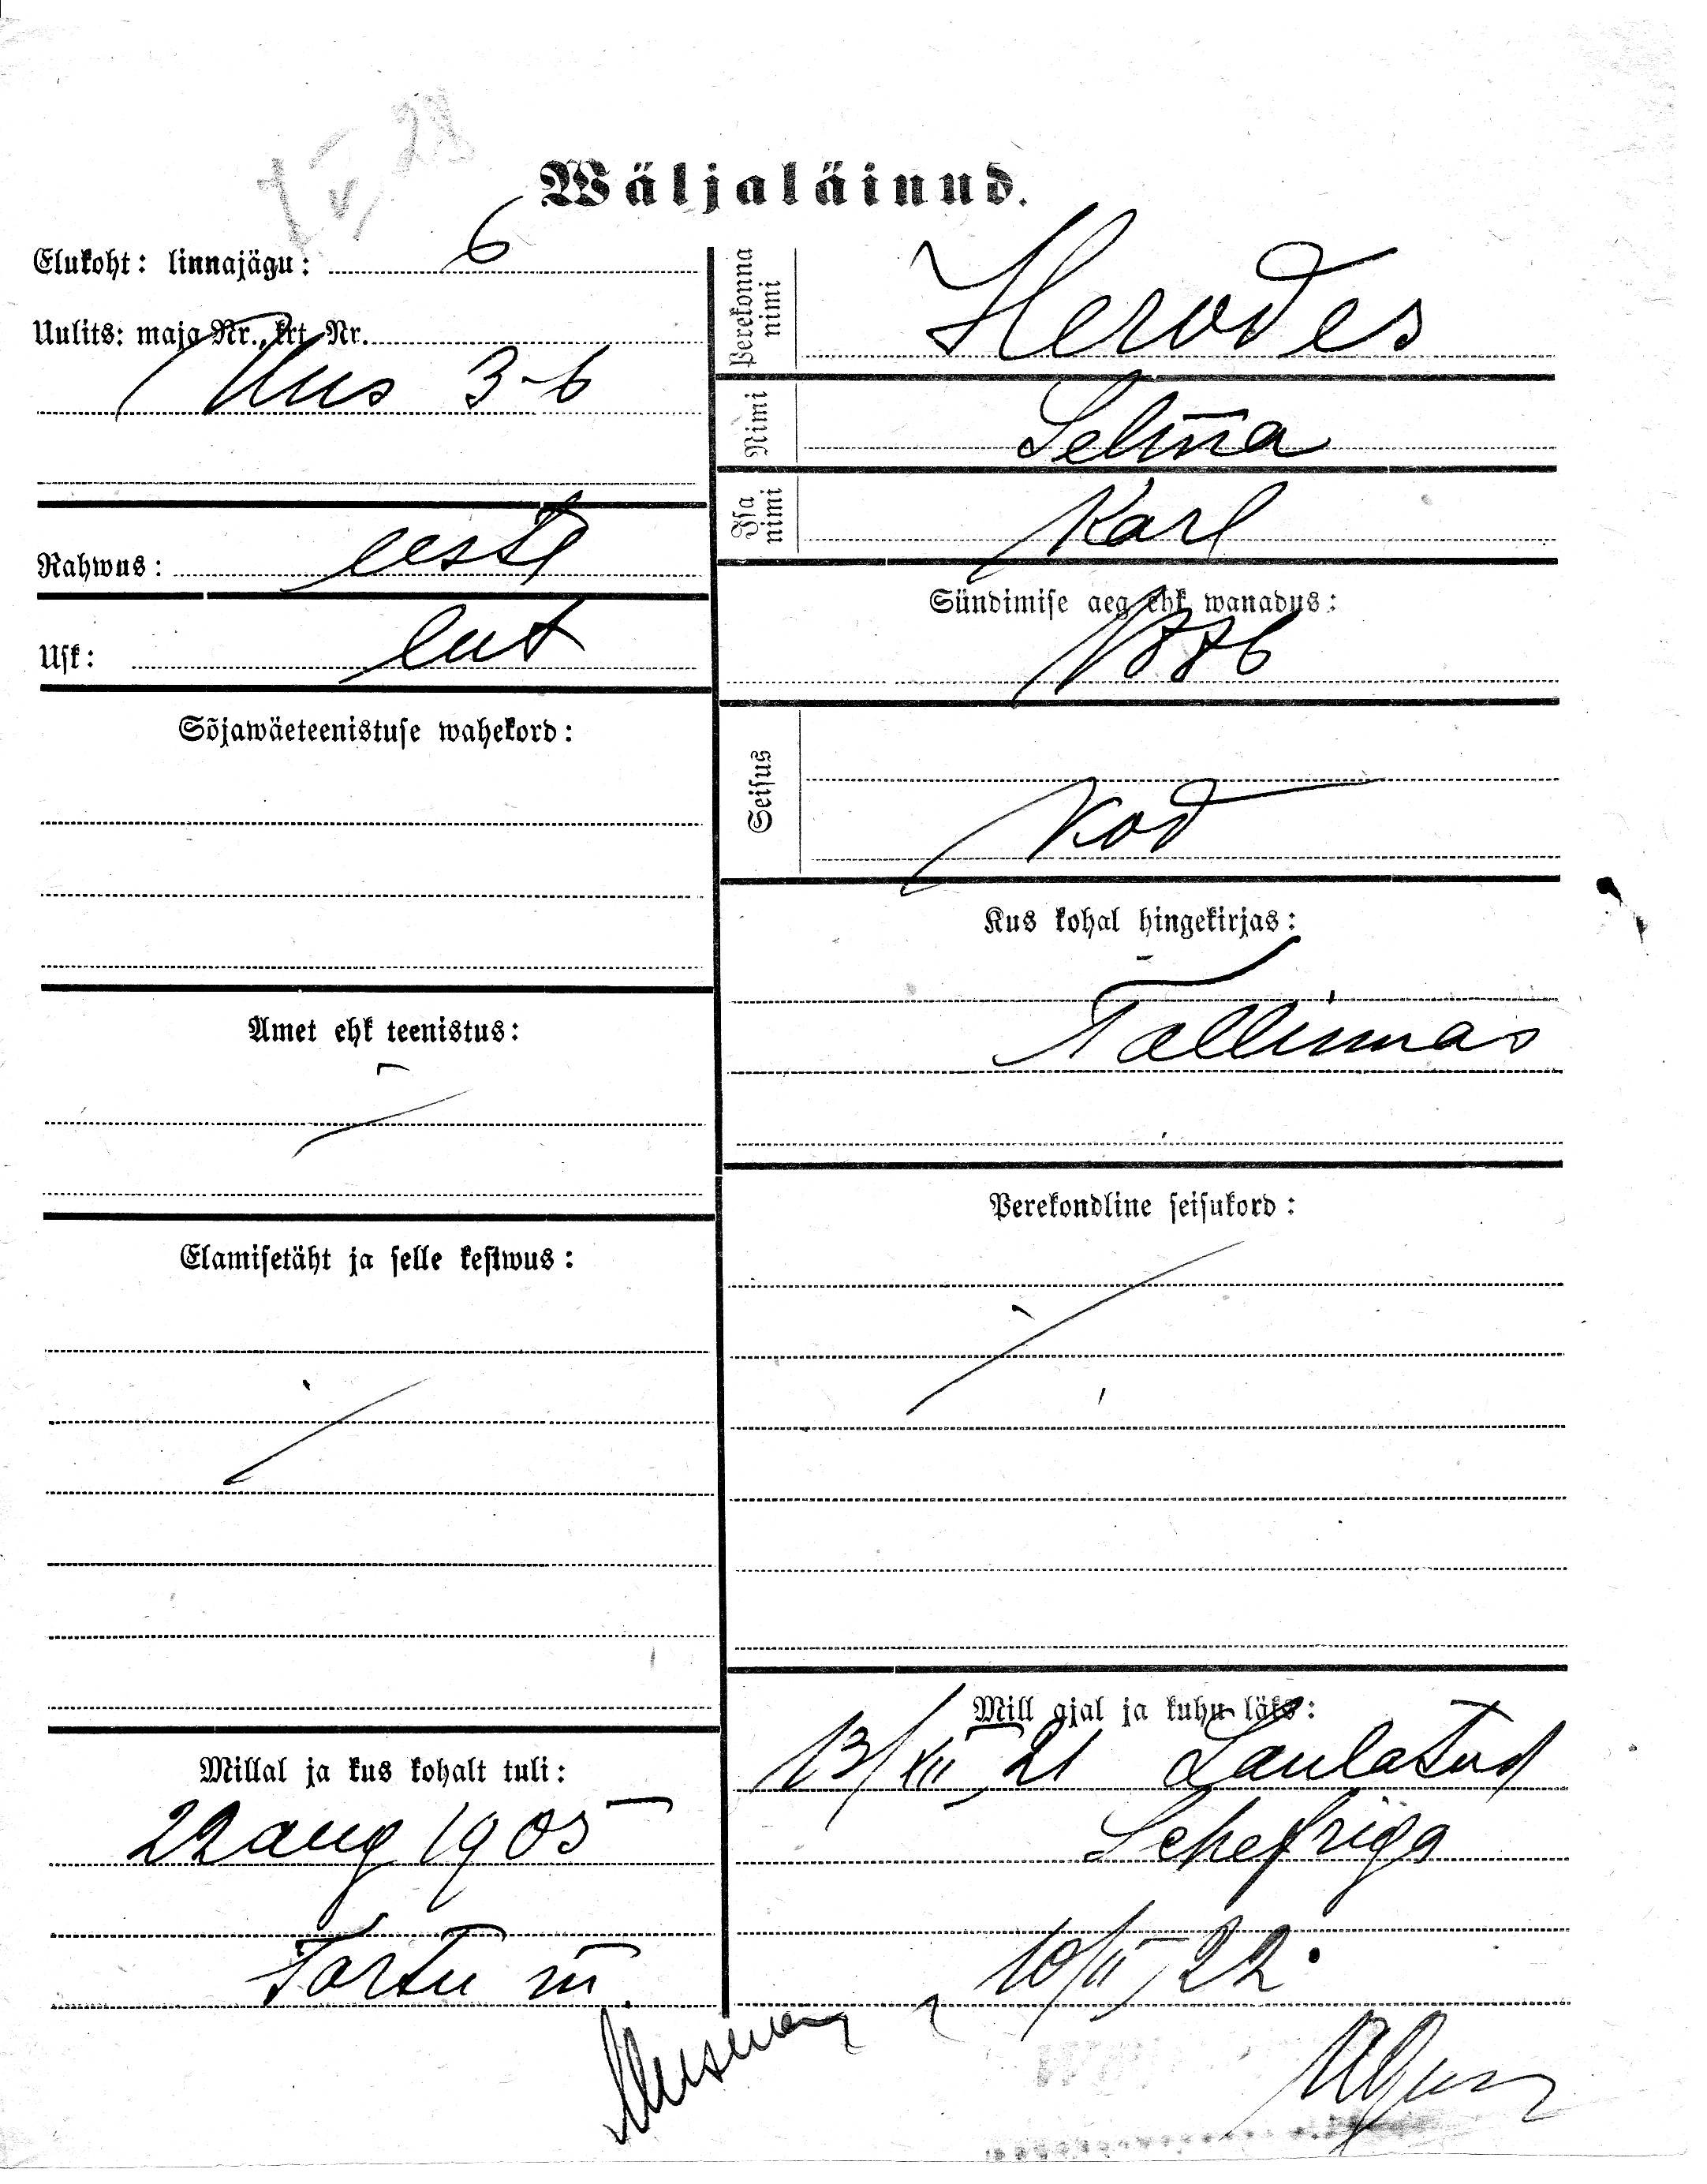 Wäljaläinud.
Elukoht: linnajägu: 6
Uulits: maja Nr., krt. Nr.
Uus 3-6
Rahwus: eesti
Usk: lut
Sõjawäeteenistuse wahekord:
Amet ehk teenistus:
Elamisetäht ja selle kestwus:
Millal ja kus kohalt tuli:
22 aug 1905
Tartu III
Perekonna nimi
Herodes
Nimi
Selma
Isa nimi
Karl
Sündimise aeg ehk wanadus:
1886
Seisus
kod
Kus kohal hingekirjas:
Tallinnas
Perekondline seisukord:
Mill ajal ja kuhu läks:
13/XII 21 Laulatud
Schefriga
10/II 22.